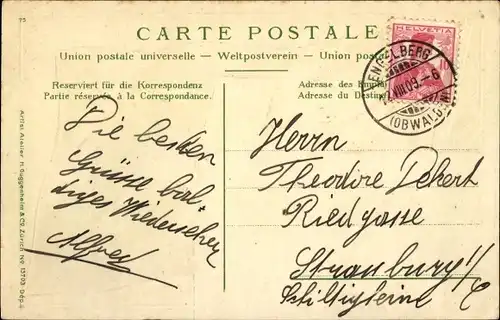 73
CARTE POSTALE
Union postale universelle — Weltpostverein — Union pos
Reserviert für die Korrespondenz
Partie réservée à la Correspondance.
Adresse des Empfä
Adresse du Destin
HELVETIA
ENGELBERG
VIII.09.-6
(OBWALDEN)
Die besten
Grüsse bal-
diges Wiedersehen
Alfred
Herrn
Theodore Dekert
Riedgasse
Strassburg i/E
Schiltigheim
Artist. Atelier H. Guggenheim & Co., Zürich No. 13793 Dép.